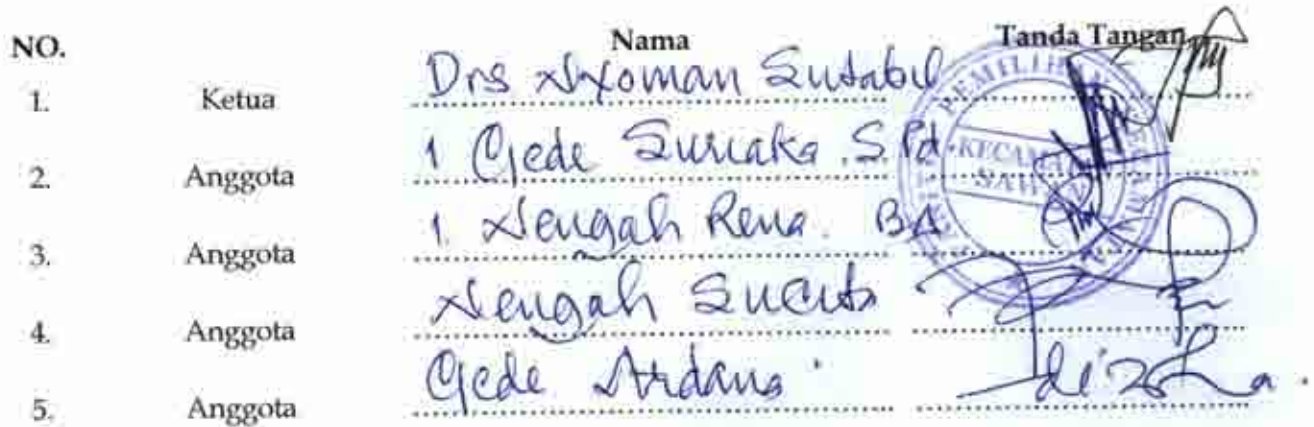 NO. Nama Tanda Tangan
1. Ketua Drs Nyoman Sutabil
2. Anggota I Gede Suriaka S.Pd.
3. Anggota I. Nengah Rena. BA
4. Anggota Nengah Sucita
5. Anggota Gede Ardana
PEMILIHAN
KECAMATAN
SAWAN